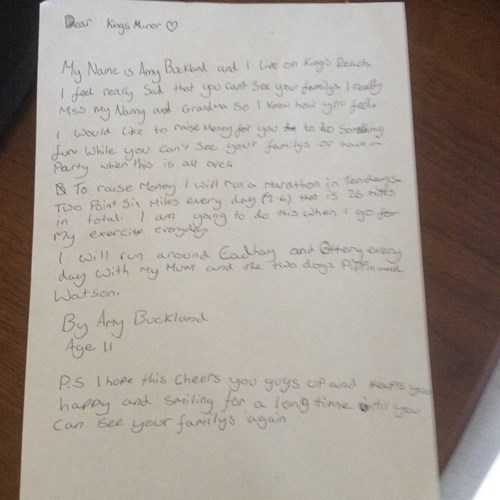 Dear Kings Manor ♡
My Name is Amy Buckland and I Live on Kings Reach
I feel really Sad that you Cant See your familys I really
Miss My Nanny and Grandma So I Know how you feel.
I would Like to raise Money for you to do Something
fun While you can't See your familys or have a
Party when this is all over.
To raise Money I will run a Marathon in Ten days
Two Point Six Miles every day (2.6) that is 26 miles
in total. I am going to do this when I go for
My exercise everyday
I will run around Cadhay and Ottery every
day with My Mum and the two dogs and
Watson.
By Amy Buckland
Age 11
P.S I hope this Cheers you guys up and keeps you
happy and Smiling for a long time until you
Can See your familys again